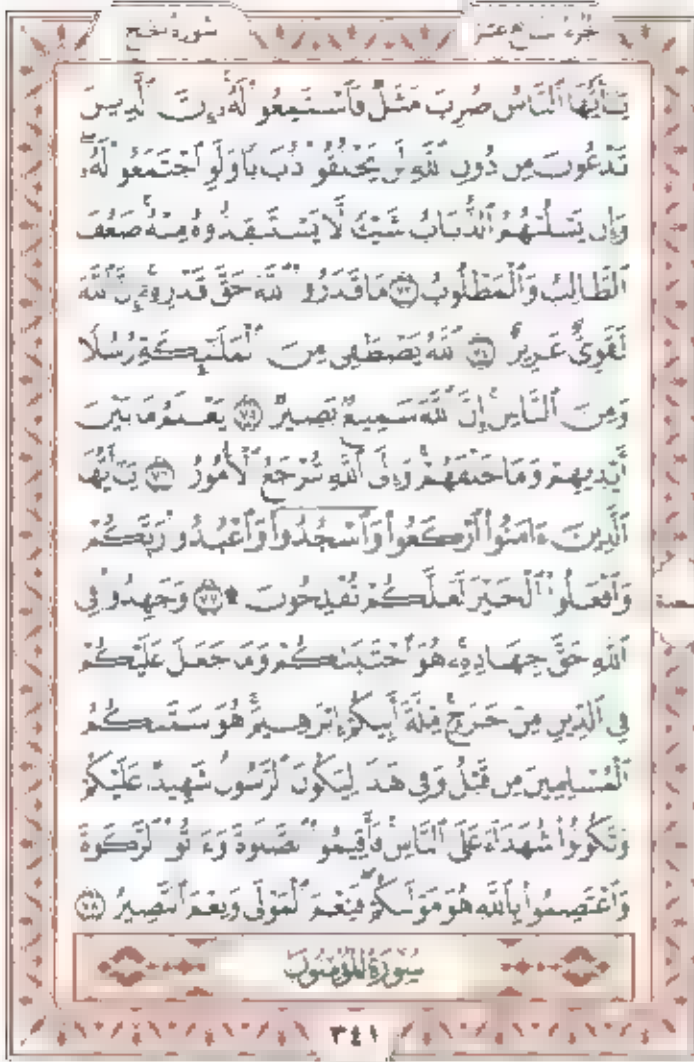 سورة الحج
الجزء السابع عشر
يَـٰٓأَيُّهَا ٱلنَّاسُ ضُرِبَ مَثَلٌ فَٱسْتَمِعُوا۟ لَهُۥٓ إِنَّ ٱلَّذِينَ
تَدْعُونَ مِن دُونِ ٱللَّهِ لَن يَخْلُقُوا۟ ذُبَابًا وَلَوِ ٱجْتَمَعُوا۟ لَهُۥ
وَإِن يَسْلُبْهُمُ ٱلذُّبَابُ شَيْـًٔا لَّا يَسْتَنقِذُوهُ مِنْهُ ضَعُفَ
ٱلطَّالِبُ وَٱلْمَطْلُوبُ ٧٣ مَا قَدَرُوا۟ ٱللَّهَ حَقَّ قَدْرِهِۦٓ إِنَّ ٱللَّهَ
لَقَوِىٌّ عَزِيزٌ ٧٤ ٱللَّهُ يَصْطَفِى مِنَ ٱلْمَلَـٰٓئِكَةِ رُسُلًا
وَمِنَ ٱلنَّاسِ إِنَّ ٱللَّهَ سَمِيعٌۢ بَصِيرٌ ٧٥ يَعْلَمُ مَا بَيْنَ
أَيْدِيهِمْ وَمَا خَلْفَهُمْ وَإِلَى ٱللَّهِ تُرْجَعُ ٱلْأُمُورُ ٧٦ يَـٰٓأَيُّهَا
ٱلَّذِينَ ءَامَنُوا۟ ٱرْكَعُوا۟ وَٱسْجُدُوا۟ وَٱعْبُدُوا۟ رَبَّكُمْ
وَٱفْعَلُوا۟ ٱلْخَيْرَ لَعَلَّكُمْ تُفْلِحُونَ ۩ ٧٧ وَجَـٰهِدُوا۟ فِى
ٱللَّهِ حَقَّ جِهَادِهِۦ هُوَ ٱجْتَبَىٰكُمْ وَمَا جَعَلَ عَلَيْكُمْ
فِى ٱلدِّينِ مِنْ حَرَجٍ مِّلَّةَ أَبِيكُمْ إِبْرَٰهِيمَ هُوَ سَمَّىٰكُمُ
ٱلْمُسْلِمِينَ مِن قَبْلُ وَفِى هَـٰذَا لِيَكُونَ ٱلرَّسُولُ شَهِيدًا عَلَيْكُمْ
وَتَكُونُوا۟ شُهَدَآءَ عَلَى ٱلنَّاسِ فَأَقِيمُوا۟ ٱلصَّلَوٰةَ وَءَاتُوا۟ ٱلزَّكَوٰةَ
وَٱعْتَصِمُوا۟ بِٱللَّهِ هُوَ مَوْلَىٰكُمْ فَنِعْمَ ٱلْمَوْلَىٰ وَنِعْمَ ٱلنَّصِيرُ ٧٨
سُورَةُ المُؤْمِنُونَ
٣٤١